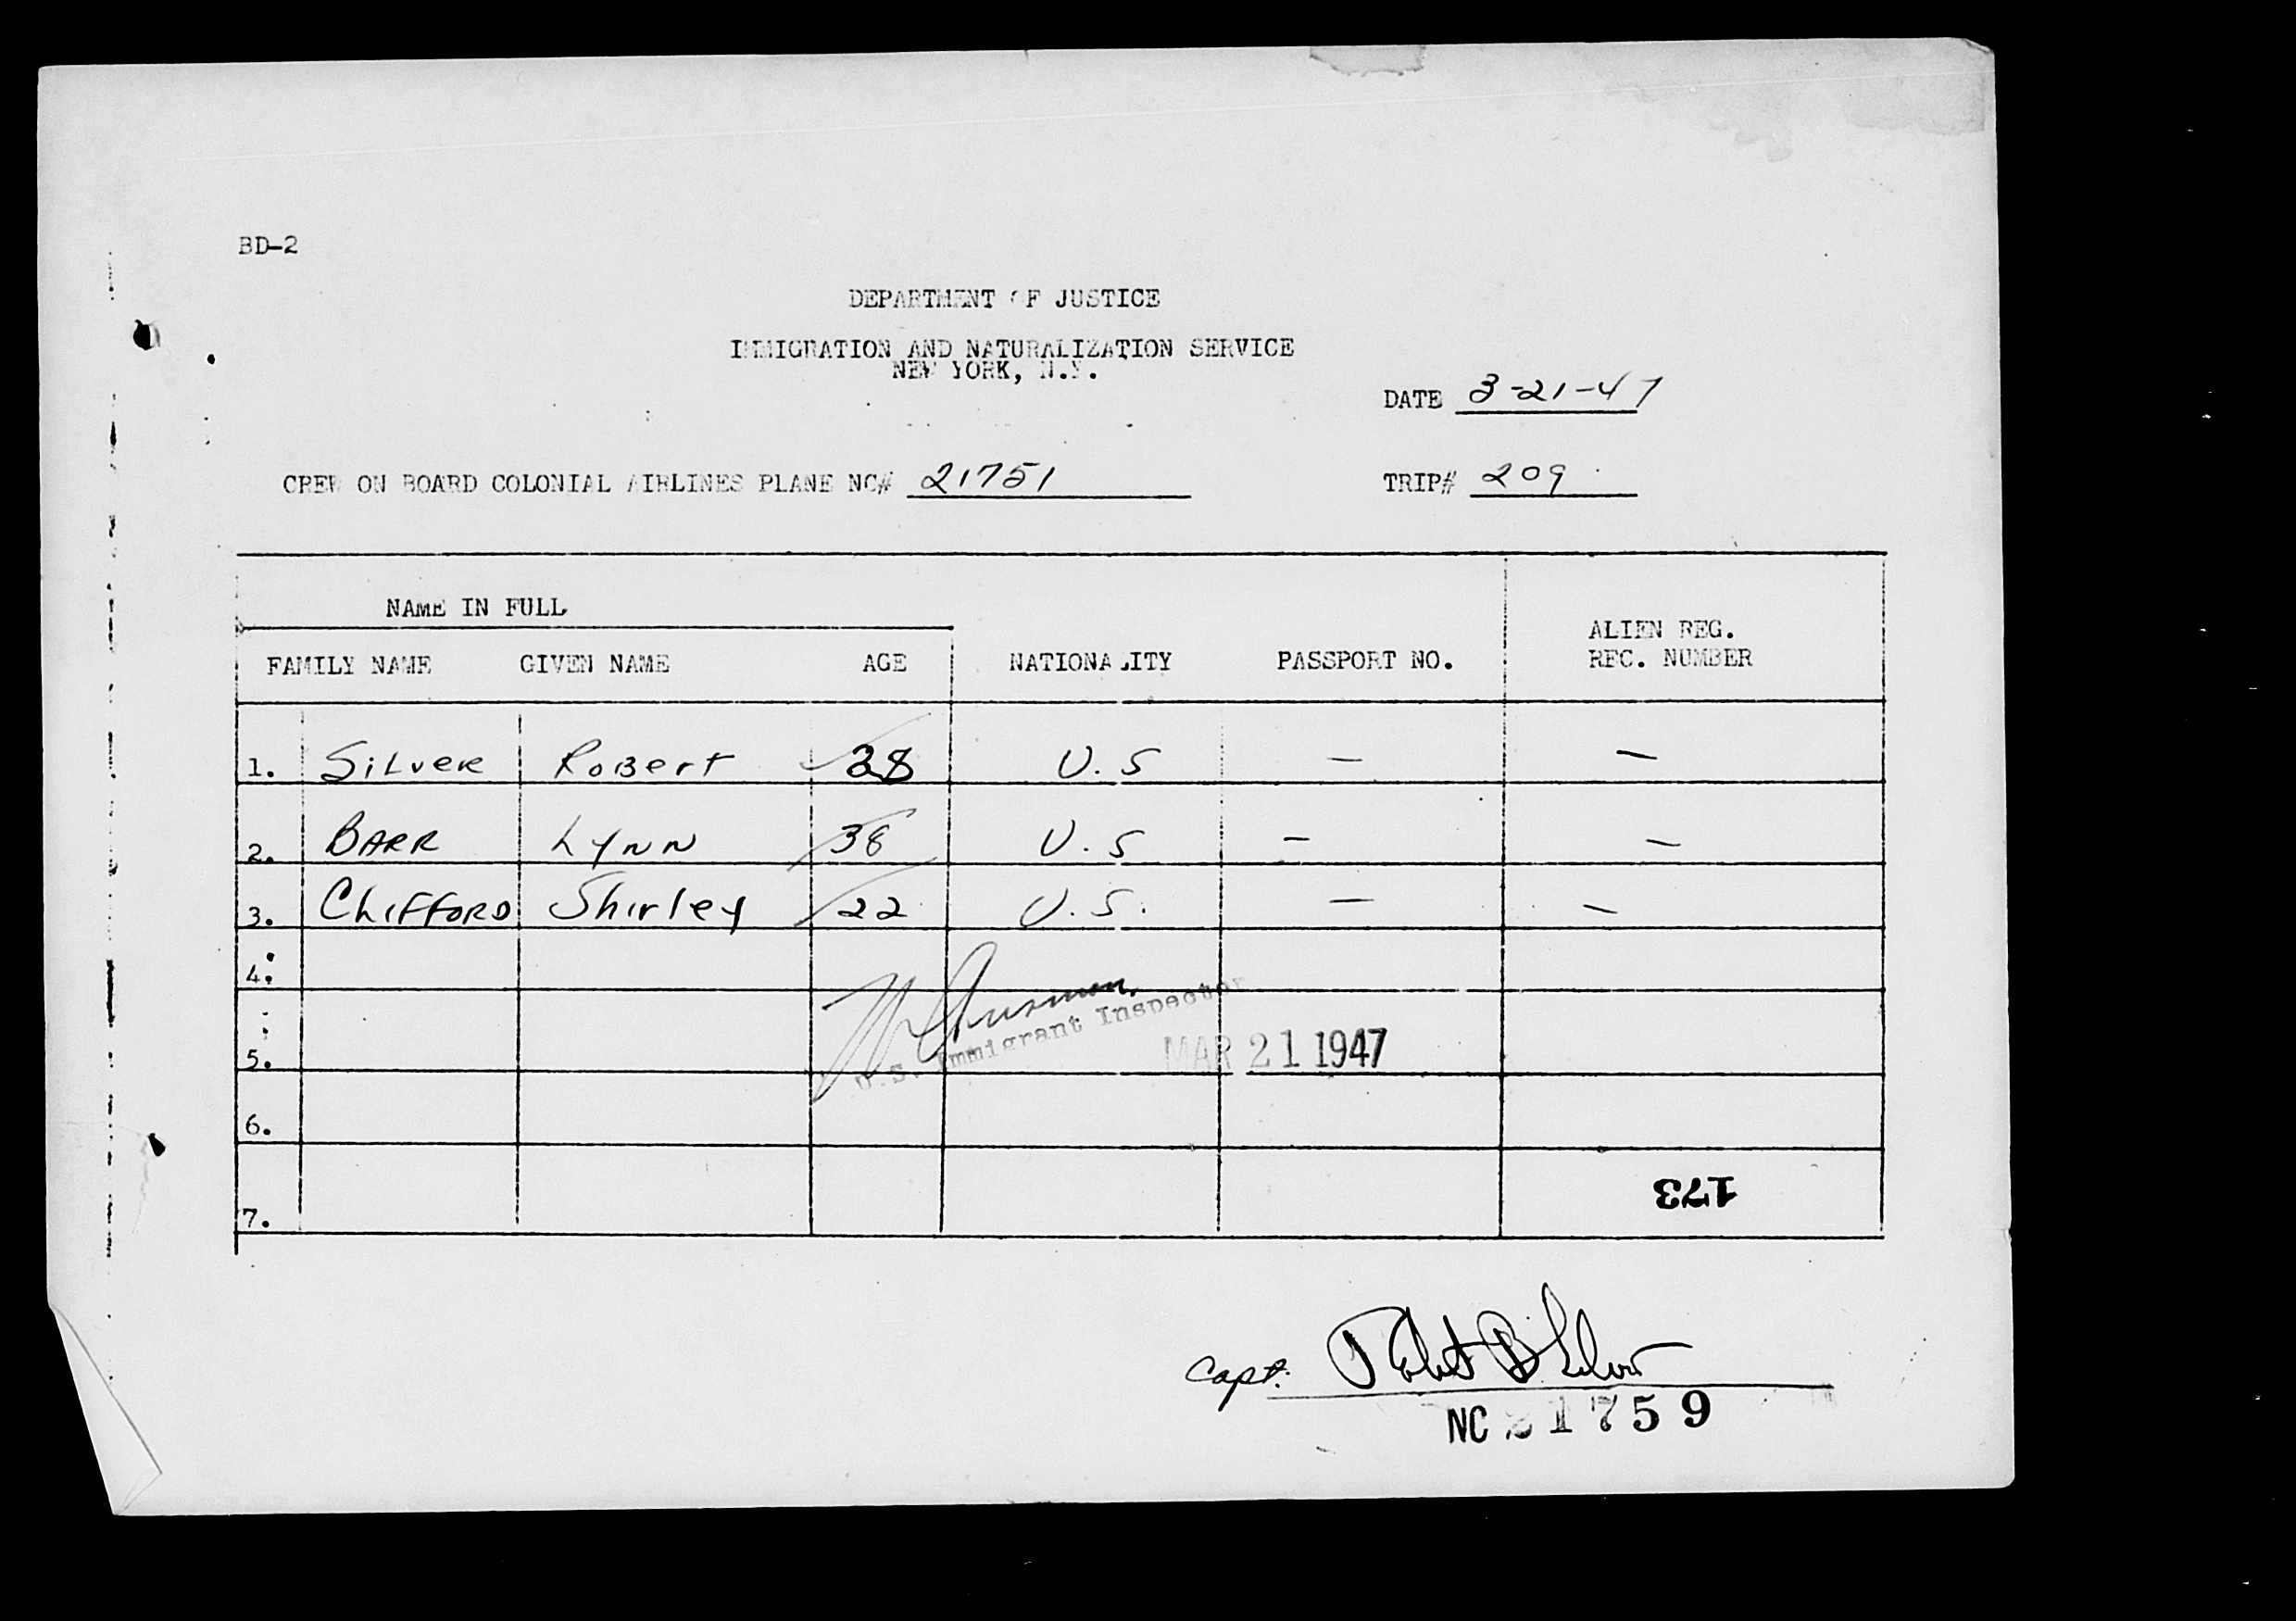 BD-2
DEPARTMENT OF JUSTICE
IMMIGRATION AND NATURALIZATION SERVICE
NEW YORK, N.Y.
DATE 3-21-47
CREW ON BOARD COLONIAL AIRLINES PLANE NC# 21751
TRIP# 209
NAME IN FULL
FAMILY NAME GIVEN NAME AGE NATIONALITY PASSPORT NO. ALIEN REG. REC. NUMBER
1. Silver Robert 28 U.S — —
2. BARR LYNN 38 U.S — —
3. CLIFFORD Shirley 22 U.S. — —
4.
U.S. Immigrant Inspector
5. MAR 21 1947
6.
173
7.
Capt. Robert B Silver
NC 21759